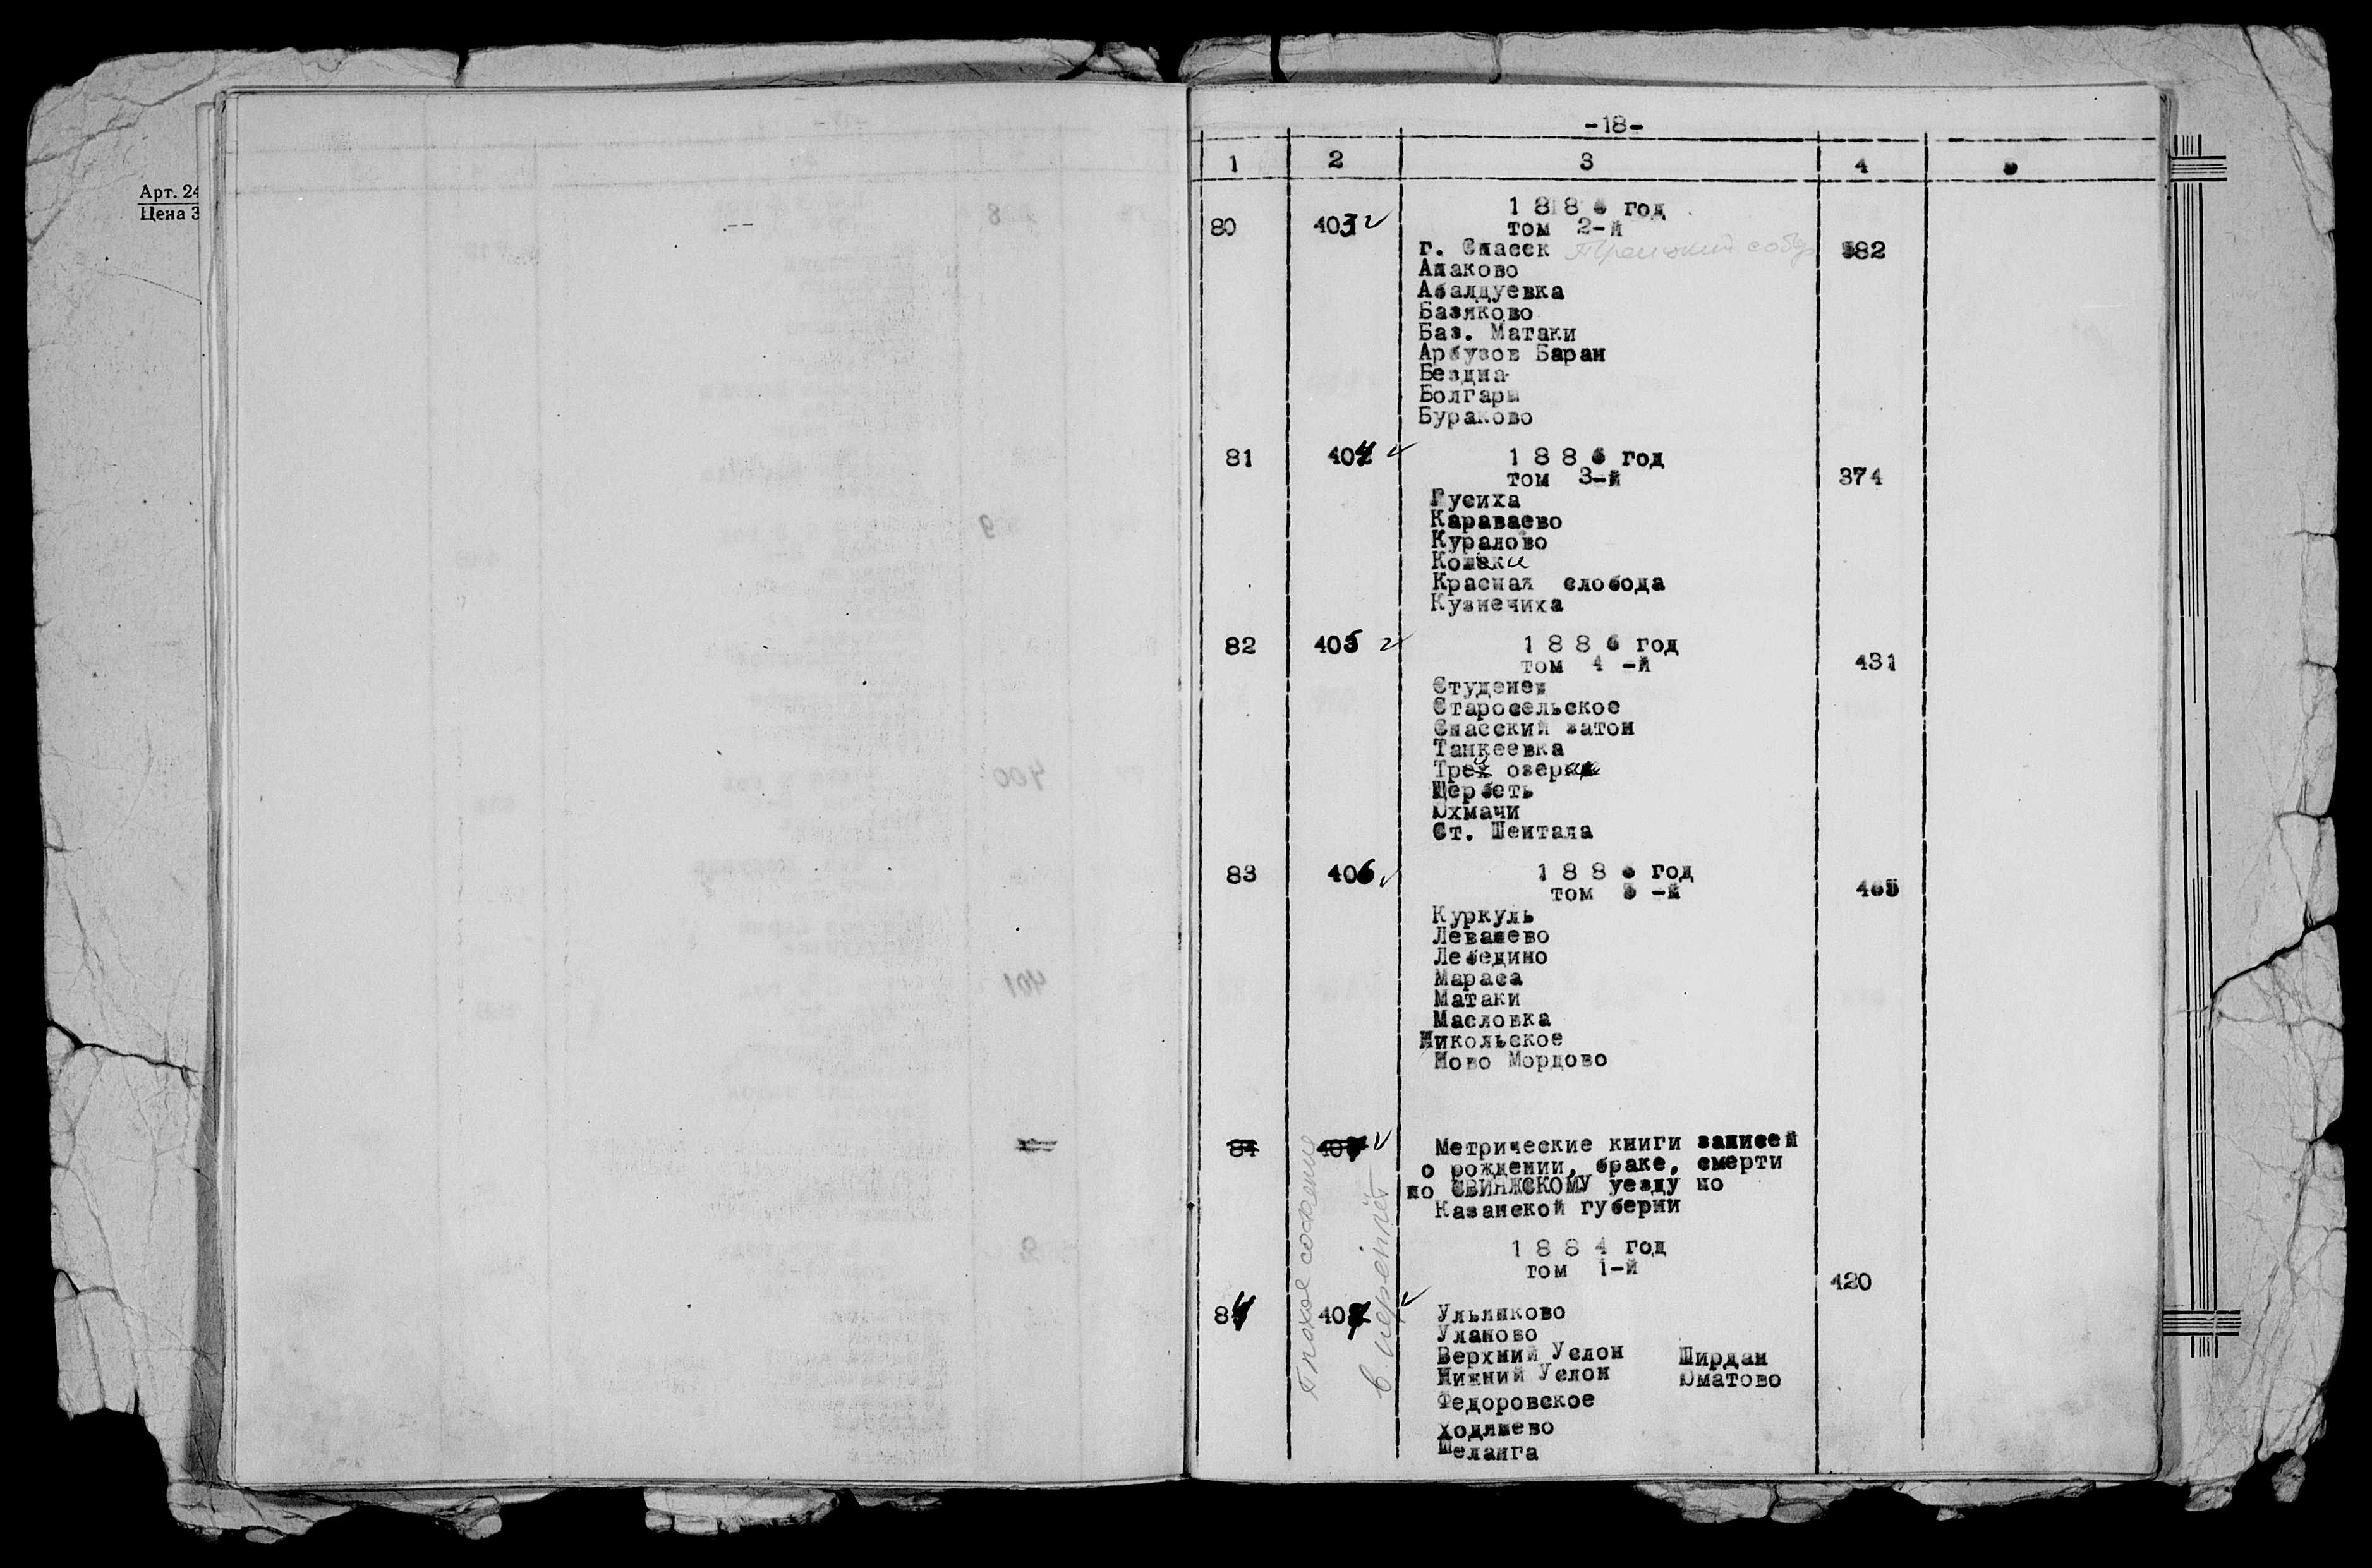 Арт. 24
Цена 3
-18-
1 2 3 4
80 403 1886 год
том 2-й
г. Спасск Троицкий собор 582
Апаково
Абалдуевка
Базяково
Баз. Матаки
Арбузов Баран
Бездна
Болгары
Бураково
81 404 1886 год
том 3-й 374
Гусиха
Караваево
Куралово
Кошки
Красная слобода
Кузнечиха
82 405 1886 год
том 4-й 431
Студенец
Старосельское
Спасский затон
Танкеевка
Три озера
Щербеть
Юхмачи
Ст. Шентала
83 406 1886 год
том 5-й 465
Куркуль
Левашево
Лебедино
Мараса
Матаки
Масловка
Никольское
Ново Мордово
84 407 Метрические книги записей
о рождении, браке, смерти
по СВИЯЖСКОМУ уезду по
Казанской губерни
1884 год
том 1-й
420
84 407 Ульянково
Уланово
Верхний Услон Ширдан
Нижний Услон Юматово
Федоровское
Ходяшево
Шеланга
Плохое состояние
в переплёт